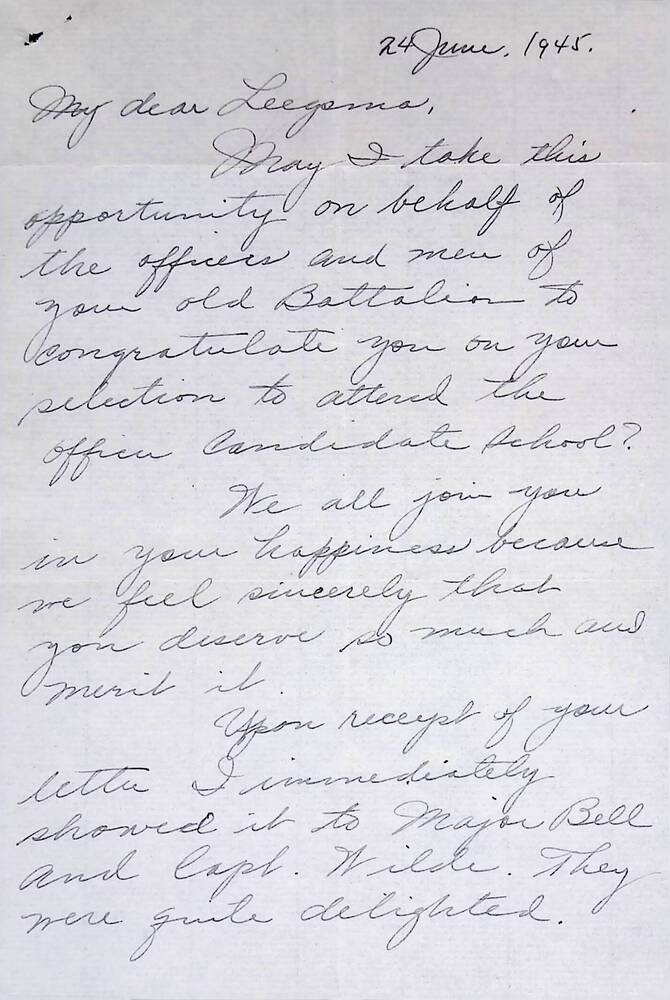 24 June, 1945.
My dear Leegsma,
May I take this
opportunity on behalf of
the officers and men of
your old Battalion to
congratulate you on your
selection to attend the
Officer Candidate School?
We all join you
in your happiness because
we feel sincerely that
you deserve so much and
merit it.
Upon receipt of your
letter I immediately
showed it to Major Bell
and Capt. Wilde. They
were quite delighted.